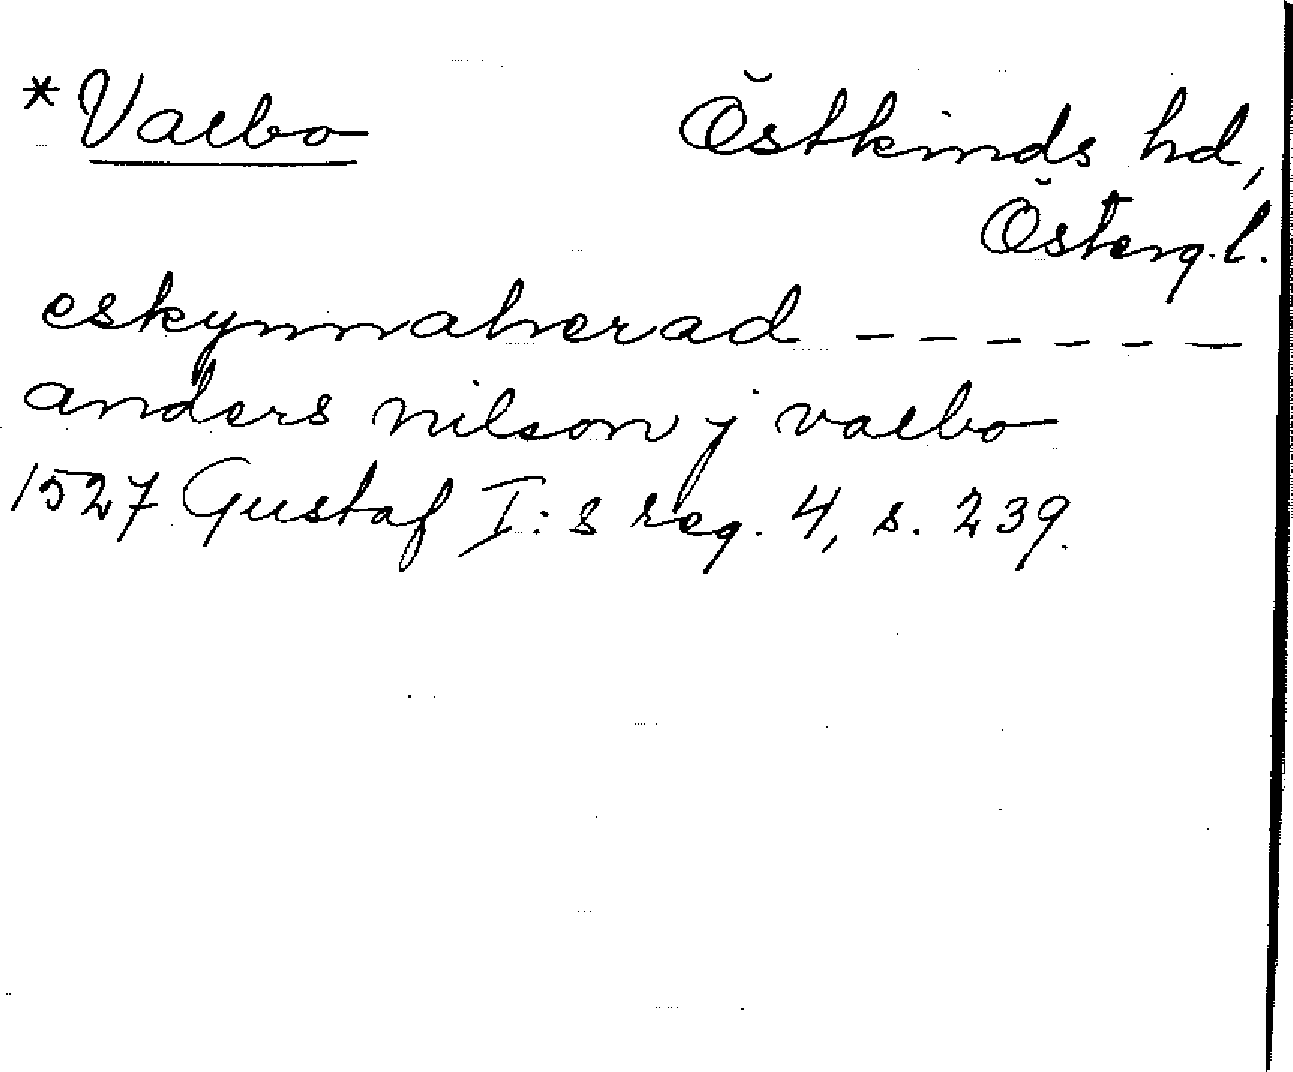 *Vaebo Östkinds hd,
Österg.l.
eskynnaherad - - - - - -
anders nilson j vaebo
1527 Gustaf I:s reg. 4, s. 239.